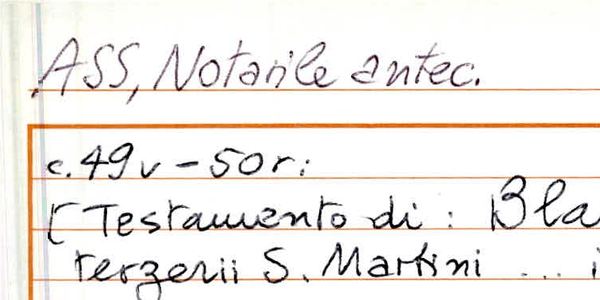 ASS, Notarile antec.
c. 49v - 50r:
[Testamento di: Bla
terzerii S. Martini ... i